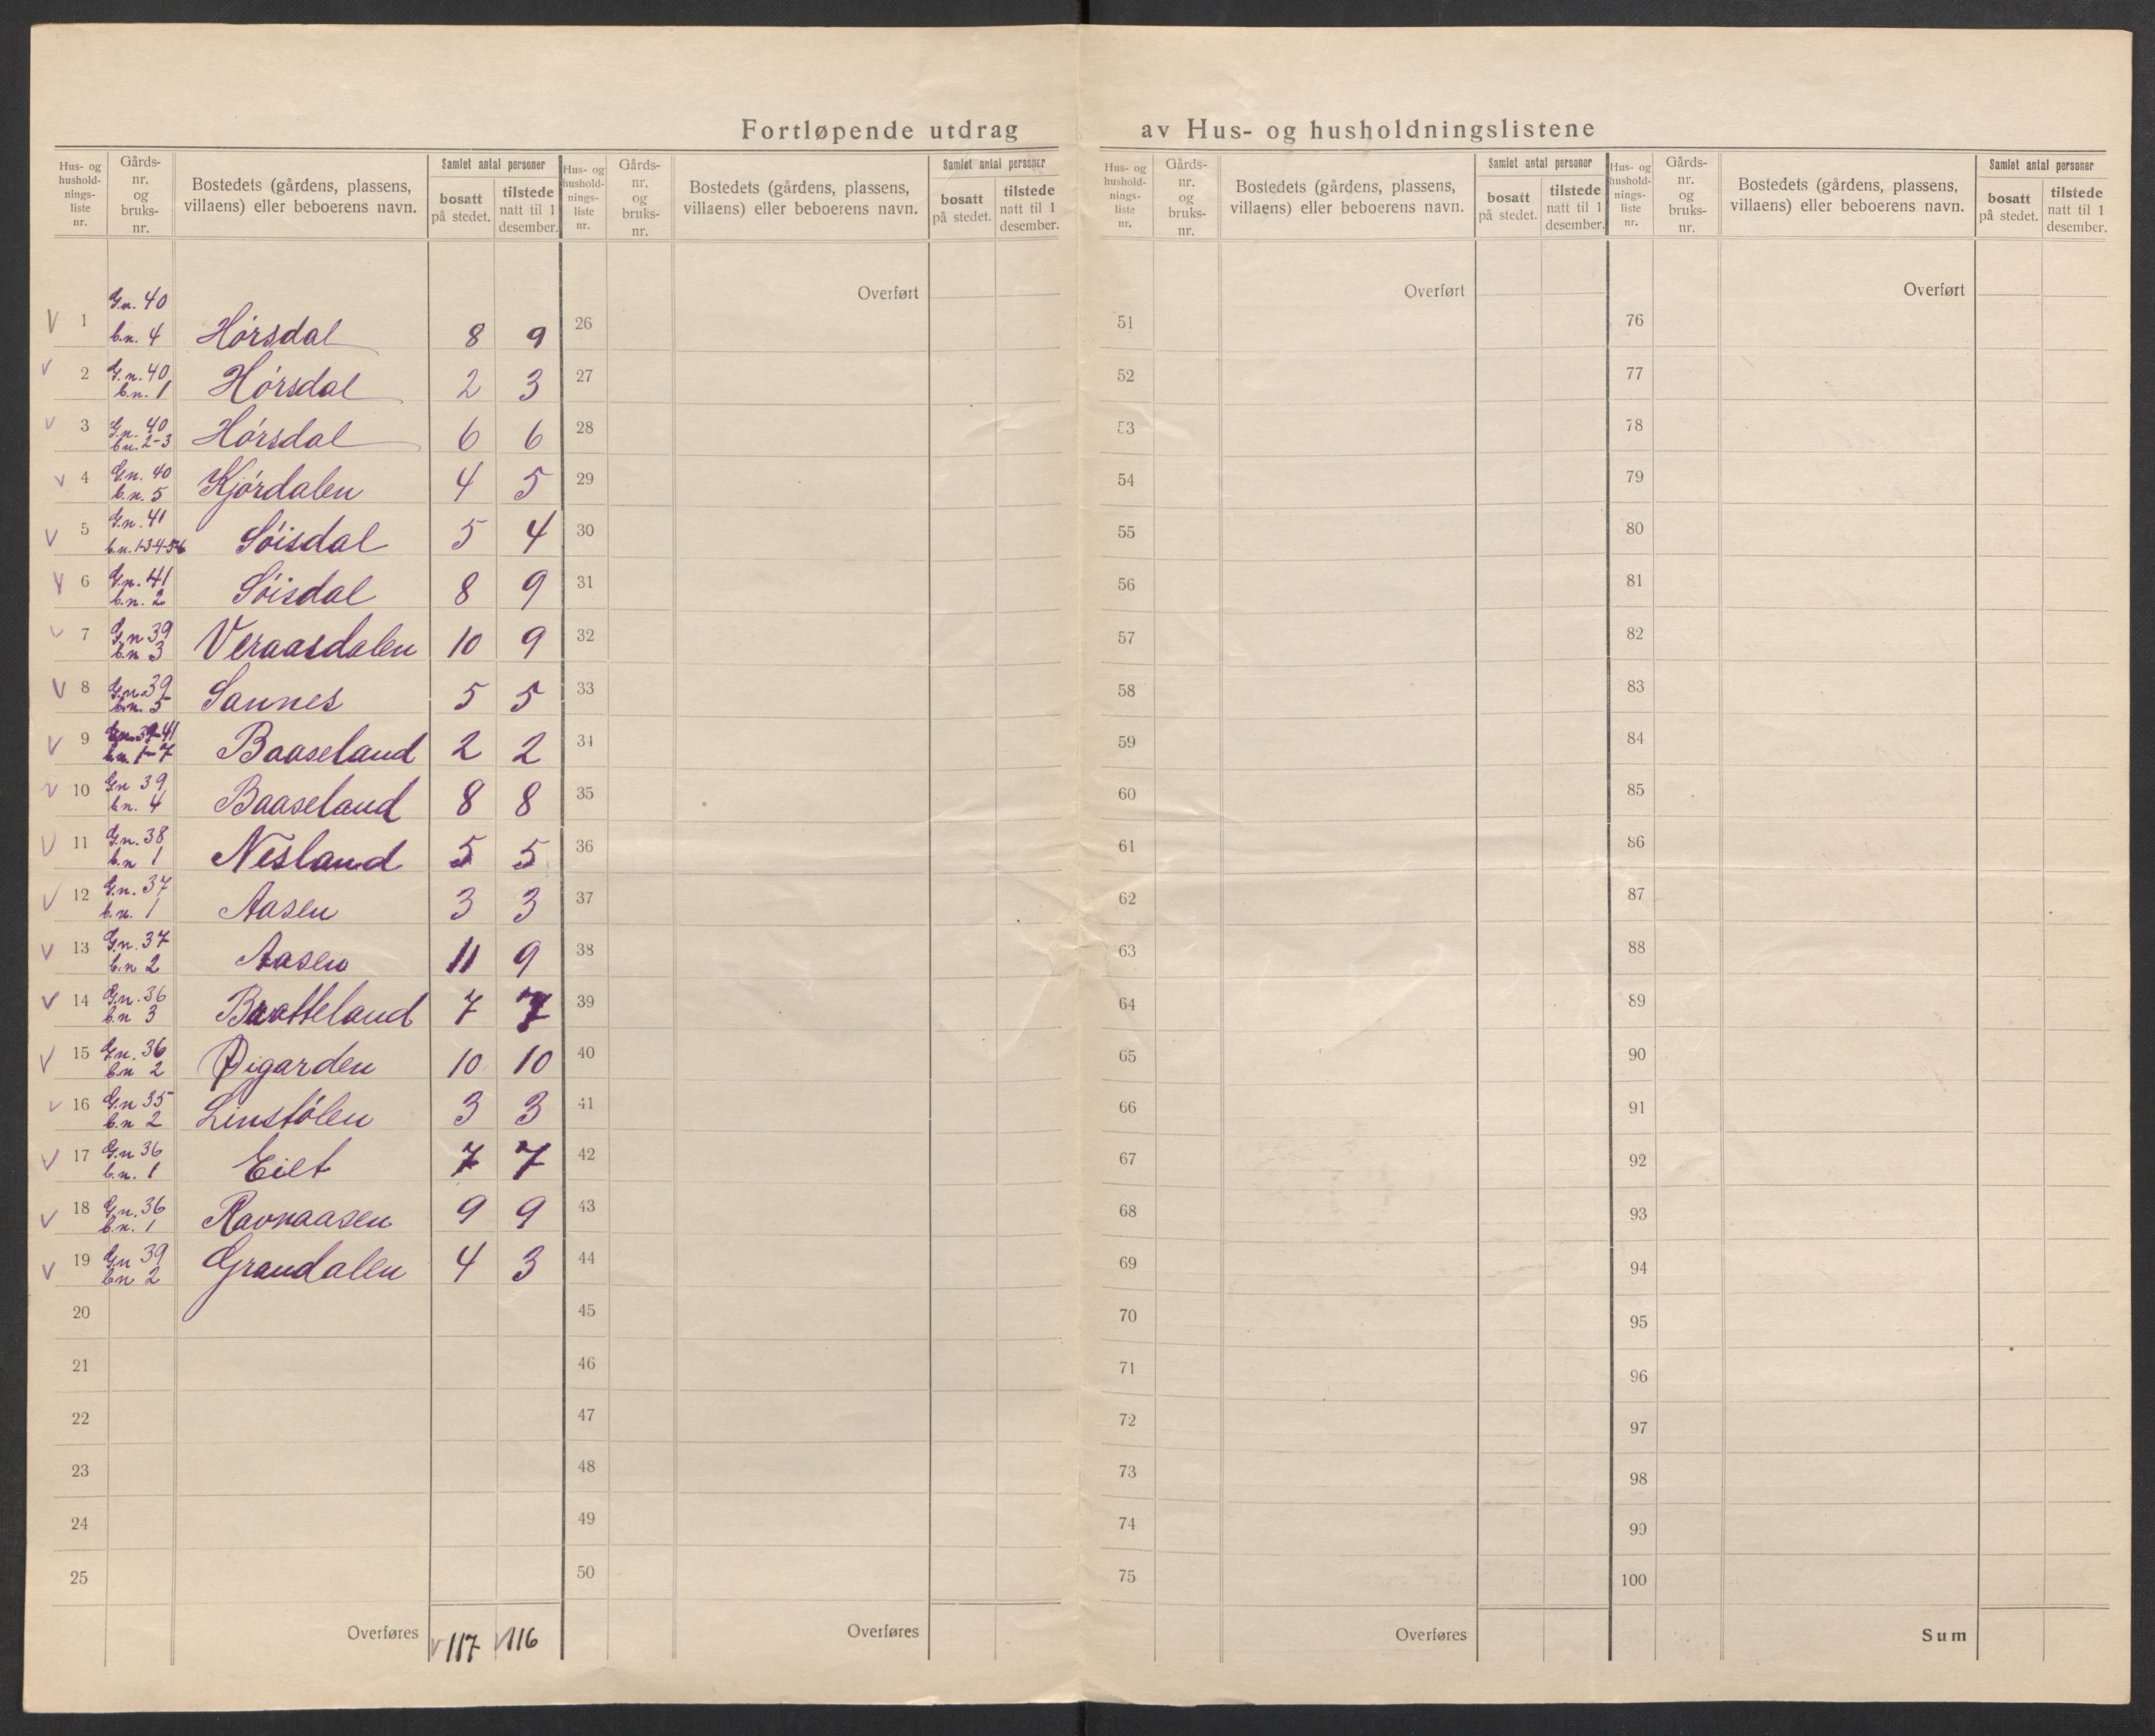 Fortløpende utdrag av Hus- og husholdningslistene
Hus- og hushold-nings-liste nr. Gårds-nr. og bruks-nr. Bostedets (gårdens, plassens, villaens) eller beboerens navn. Samlet antal personer bosatt på stedet. tilstede natt til 1 desember.
1 G.n. 40 b.n. 4 Hórsdal 8 9
2 G.n. 40 b.n. 1 Hórsdal 2 3
3 G.n. 40 b.n. 2-3 Hórsdal 6 6
4 G.n. 40 b.n. 5 Kjórdalen 4 5
5 G.n. 41 b.n. 1-3-4-5-6 Sóisdal 5 4
6 G.n. 41 b.n. 2 Sóisdal 8 9
7 G.n 39 b.n 3 Veraasdalen 10 9
8 G.n. 39 b.n. 5 Sannes 5 5
9 G.n. 39-41 b.n. 1-7 Baaseland 2 2
10 Gn 39 bn. 4 Baaseland 8 8
11 G.n. 38 b.n 1 Nesland 5 5
12 G.n. 37 b.n. 1 Aasen 3 3
13 G.n. 37 b.n 2 Aasen 11 9
14 G.n. 36 b.n 3 Bratteland 7 7
15 G.n. 36 b.n 2 Øigarden 10 10
16 G.n 35 b.n 2 Linstólen 3 3
17 G.n 36 b.n. 1 Eilt 7 7
18 G.n. 36 b.n. 1 Ravnaasen 9 9
19 Gn 39 bn 2 Grandalen 4 3
20
21
22
23
24
25
Overføres 117 116
Hus- og hushold-nings-liste nr. Gårds-nr. og bruks-nr. Bostedets (gårdens, plassens, villaens) eller beboerens navn. Samlet antal personer bosatt på stedet. tilstede natt til 1 desember.
Overført
26
27
28
29
30
31
32
33
34
35
36
37
38
39
40
41
42
43
44
45
46
47
48
49
50
Overføres
Hus- og hushold-nings-liste nr. Gårds-nr. og bruks-nr. Bostedets (gårdens, plassens, villaens) eller beboerens navn. Samlet antal personer bosatt på stedet. tilstede natt til 1 desember.
Overført
51
52
53
54
55
56
57
58
59
60
61
62
63
64
65
66
67
68
69
70
71
72
73
74
75
Overføres
Hus- og hushold-nings-liste nr. Gårds-nr. og bruks-nr. Bostedets (gårdens, plassens, villaens) eller beboerens navn. Samlet antal personer bosatt på stedet. tilstede natt til 1 desember.
Overført
76
77
78
79
80
81
82
83
84
85
86
87
88
89
90
91
92
93
94
95
96
97
98
99
100
Sum